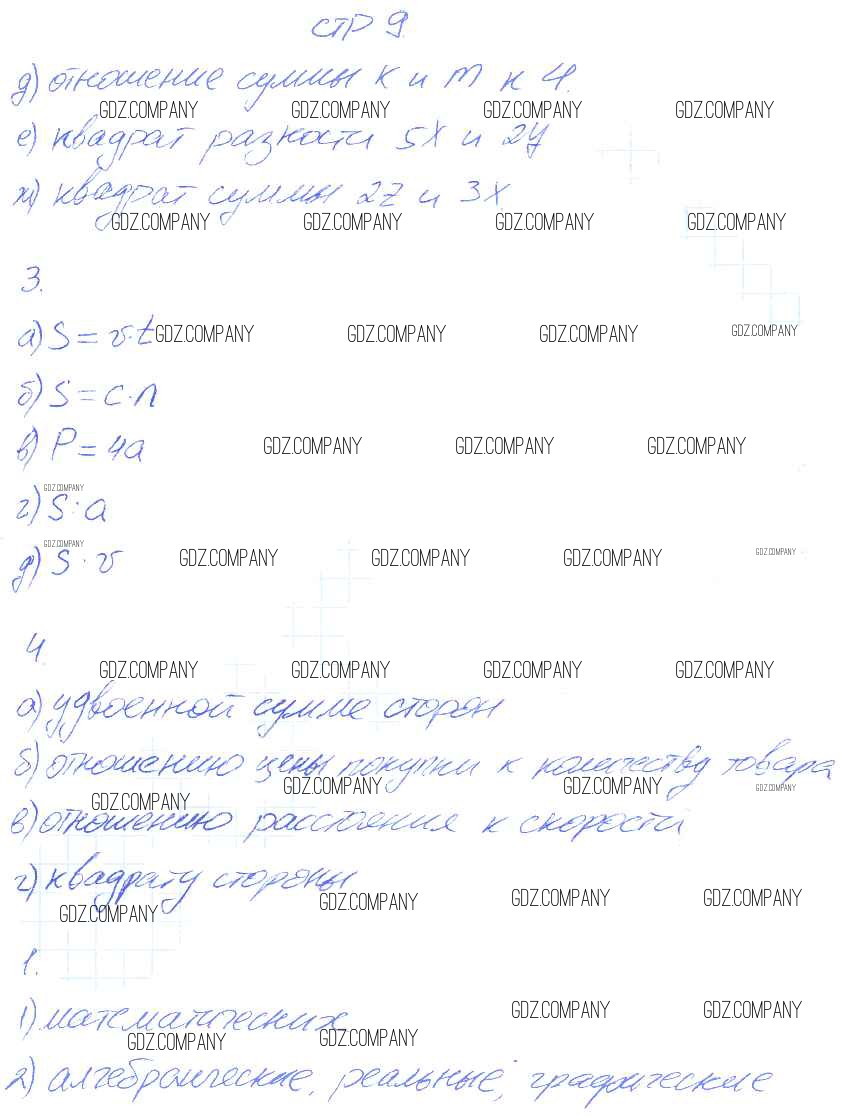 стр 9.
д) отношение суммы k и m к 4.
GDZ.COMPANY GDZ.COMPANY GDZ.COMPANY GDZ.COMPANY
е) квадрат разности 5x и 2y
ж) квадрат суммы 2z и 3x.
GDZ.COMPANY GDZ.COMPANY GDZ.COMPANY GDZ.COMPANY
3.
а) S = v·t GDZ.COMPANY GDZ.COMPANY GDZ.COMPANY GDZ.COMPANY
б) S = c·n
в) P = 4a GDZ.COMPANY GDZ.COMPANY GDZ.COMPANY
GDZ.COMPANY
г) S : a
GDZ.COMPANY
д) S · v GDZ.COMPANY GDZ.COMPANY GDZ.COMPANY GDZ.COMPANY
4.
GDZ.COMPANY GDZ.COMPANY GDZ.COMPANY GDZ.COMPANY
а) удвоенной сумме сторон
б) отношению цены покупки к количеству товара
GDZ.COMPANY GDZ.COMPANY GDZ.COMPANY GDZ.COMPANY
в) отношению расстояния к скорости
г) квадрату стороны
GDZ.COMPANY GDZ.COMPANY GDZ.COMPANY GDZ.COMPANY
1.
1) математических
GDZ.COMPANY GDZ.COMPANY GDZ.COMPANY GDZ.COMPANY
2) алгебраические, реальные, графические